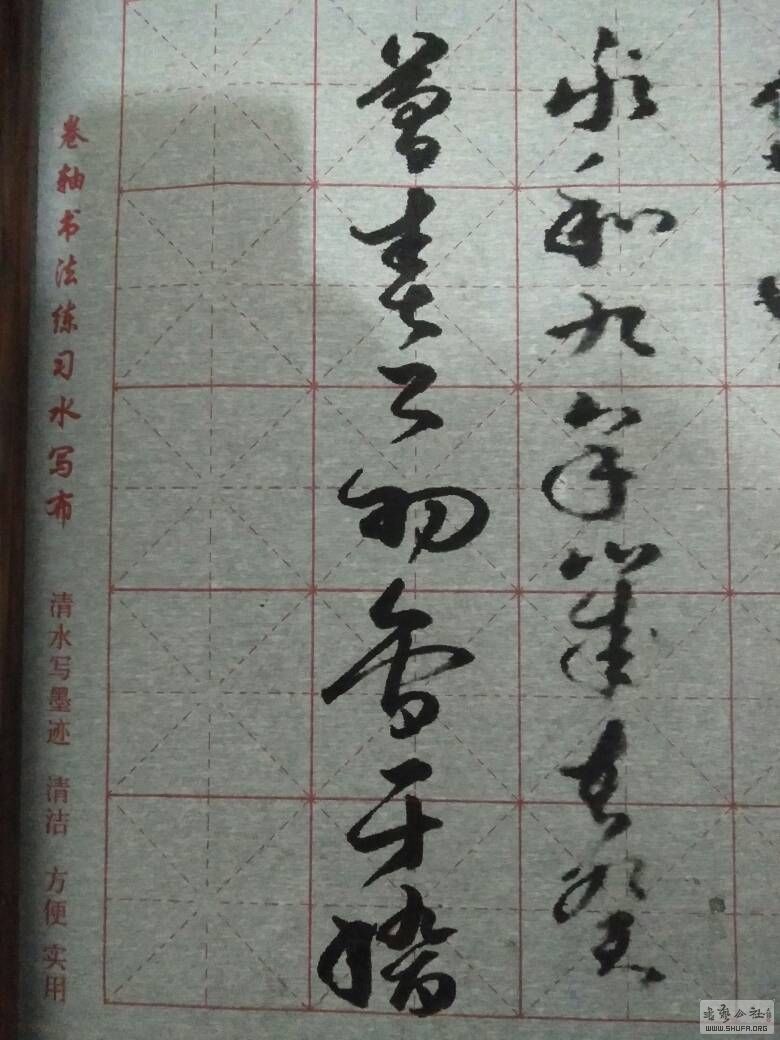 永和九年歲在癸
暮春之初會于稽
卷轴书法练习水写布
清水写墨迹 清洁 方便 实用
书艺公社
WWW.SHUFA.ORG